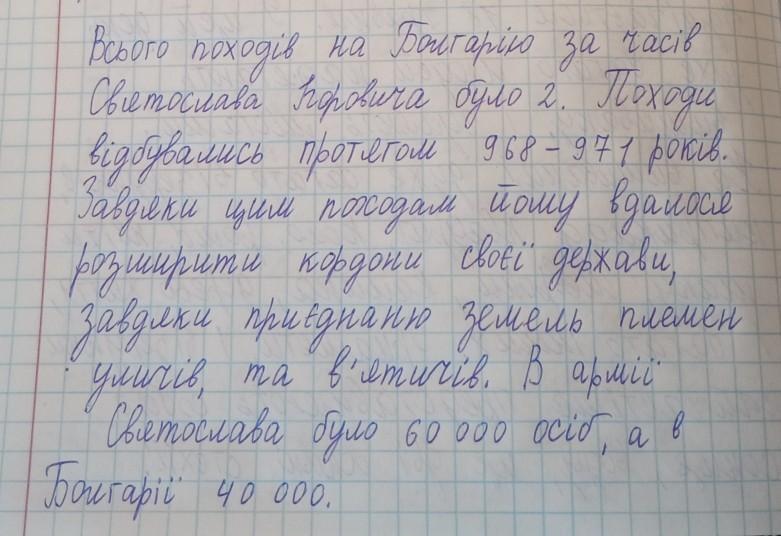 Всього походів на Болгарію за часів
Святослава Ігоровича було 2. Походи
відбувались протягом 968-971 років.
Завдяки цим походам йому вдалося
розширити кордони своєї держави,
завдяки приєднанню земель племен
уличів, та в'ятичів. В армії
Святослава було 60 000 осіб, а в
Болгарії 40 000.